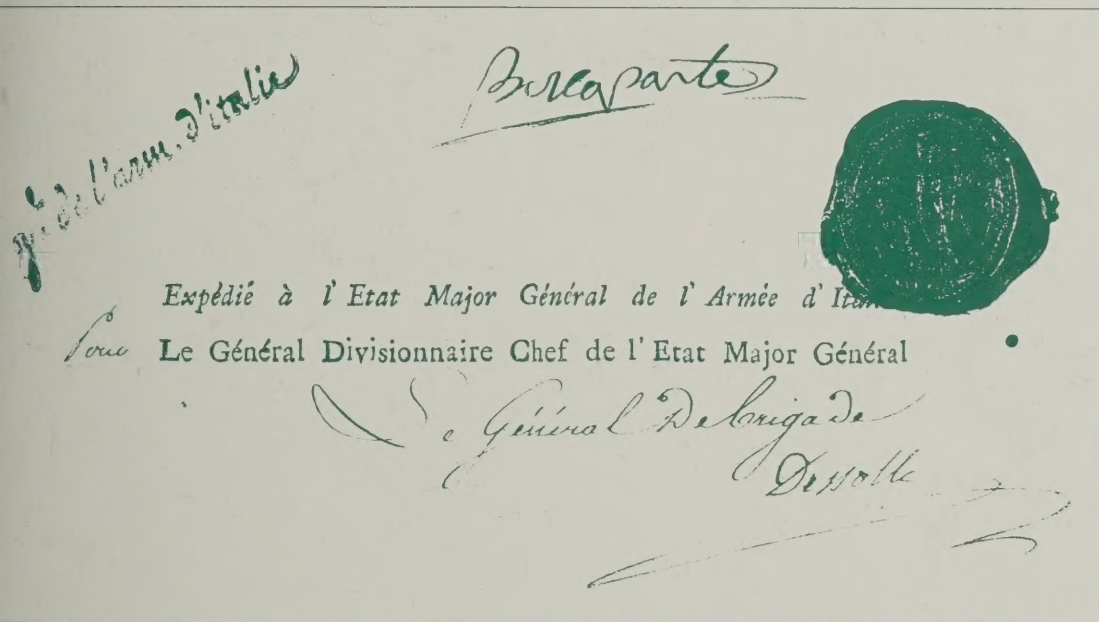 Buonaparte
gé. de l'arm. d'italie
Expédié à l'Etat Major Général de l'Armée d'Ita
Pour Le Général Divisionnaire Chef de l'Etat Major Général
Le Général De brigade
Dessolle